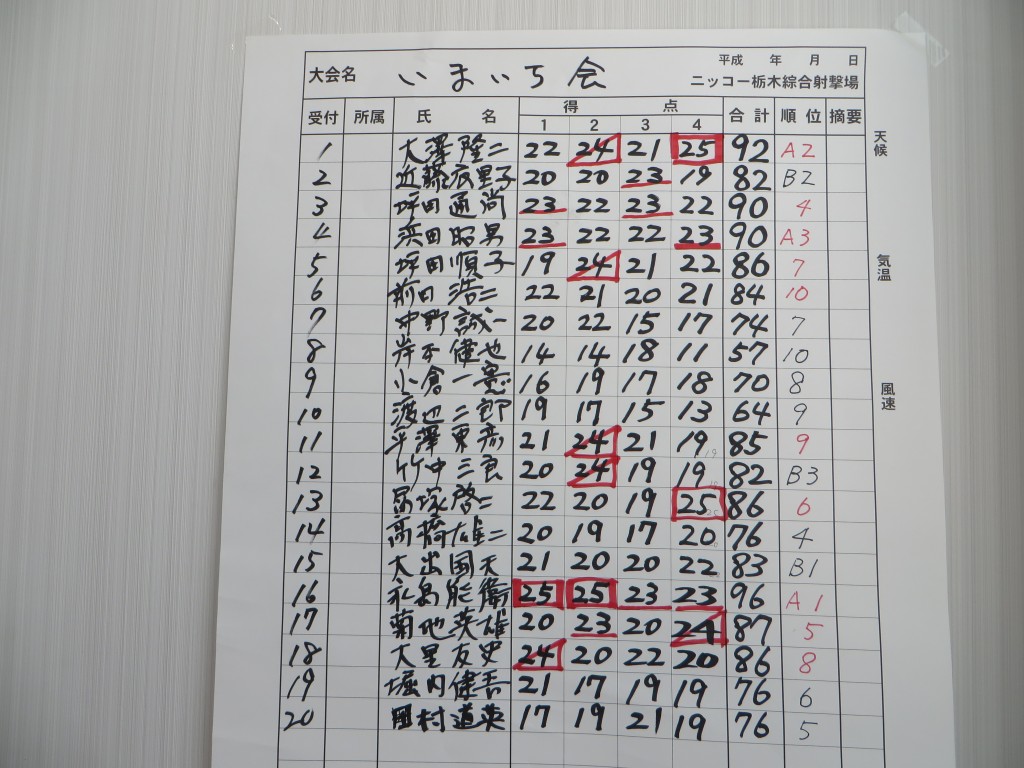 平成 年 月 日
大会名 いまいち会 ニッコー栃木綜合射撃場
受付 所属 氏 名 得 点 合計 順位 摘要
1 2 3 4
天候
1 大澤隆二 22 24 21 25 92 A2
2 近藤辰里子 20 20 23 19 82 B2
3 坪田通尚 23 22 23 22 90 4
4 浜田昭男 23 22 22 23 90 A3
気温
5 坪田順子 19 24 21 22 86 7
6 前田浩二 22 21 20 21 84 10
7 中野誠一 20 22 15 17 74 7
8 岸本健也 14 14 18 11 57 10
風速
9 小倉一憲 16 19 17 18 70 8
10 渡辺二郎 19 17 15 13 64 9
11 平澤東彦 21 24 21 19 85 9
12 竹中三良 20 24 19 19 82 B3
13 塚啓二 22 20 19 25 86 6
14 高橋雄二 20 19 17 20 76 4
15 大出国夫 21 20 20 22 83 B1
16 永島能衛 25 25 23 23 96 A1
17 菊地英雄 20 23 20 24 87 5
18 大里友史 24 20 22 20 86 8
19 堀内健吾 21 17 19 19 76 6
20 村道英 17 19 21 19 76 5